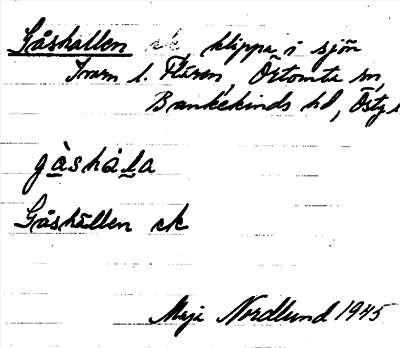 Gåshällen ek, klippa i sjön
Inom l. Flären, Örtomta sn,
Bankekinds hd, Östg
gàshäla
Gåshällen ek
Maja Nordlund 1945